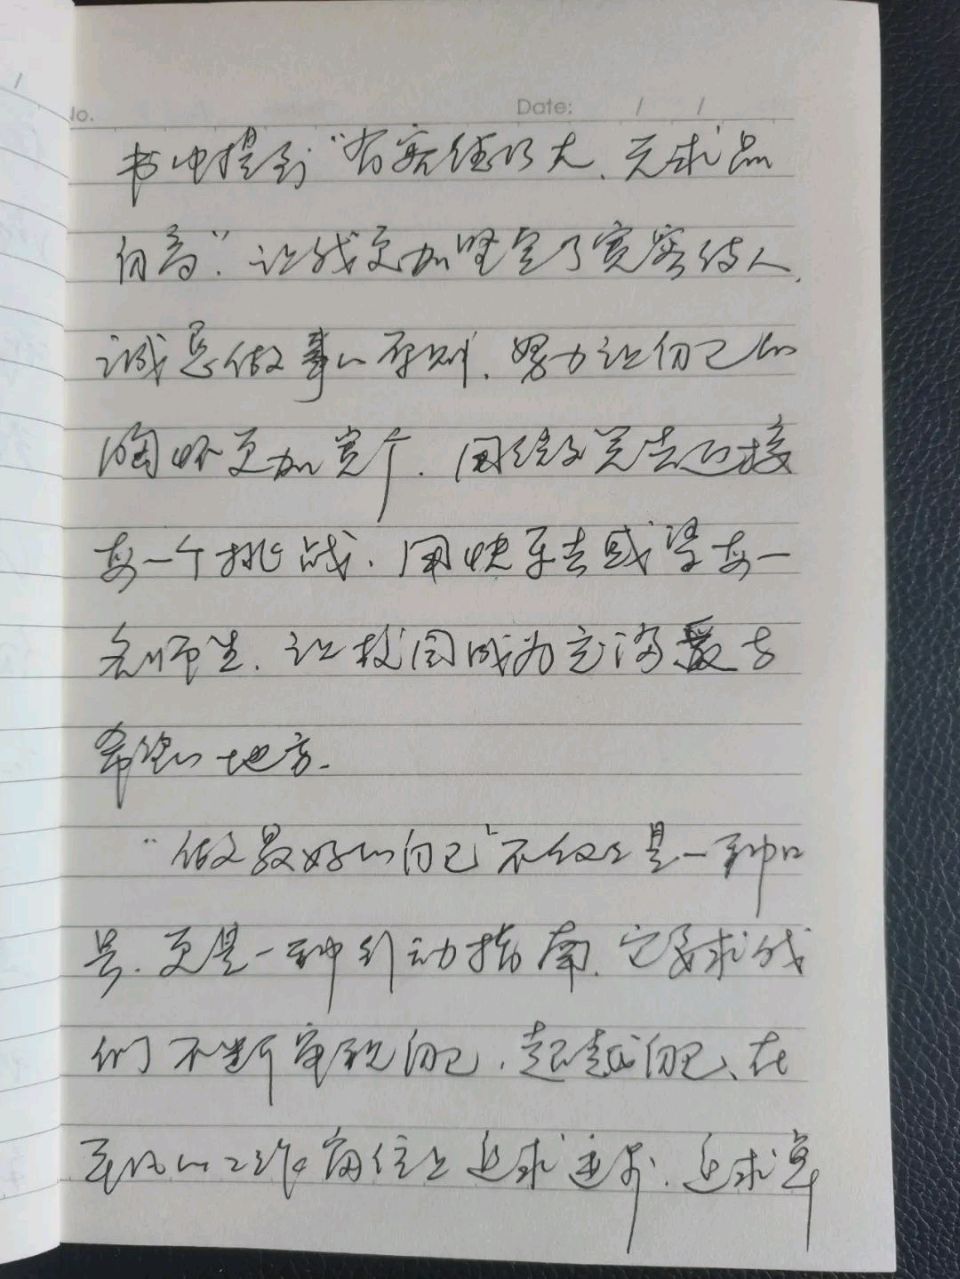 No.
Date: / /
书中提到“有容德乃大，无求品
自高”。让我更加坚定了宽容待人，
诚恳做事的原则，努力让自己的
胸怀更加宽广，用微笑去迎接
每一个挑战，用快乐去感染每一
名师生，让校园成为充满爱与
希望的地方。
“做最好的自己”不仅仅是一种口
号，更是一种行动指南，它要求我
们不断审视自己，超越自己，在
平凡的工作岗位上追求进步，追求卓